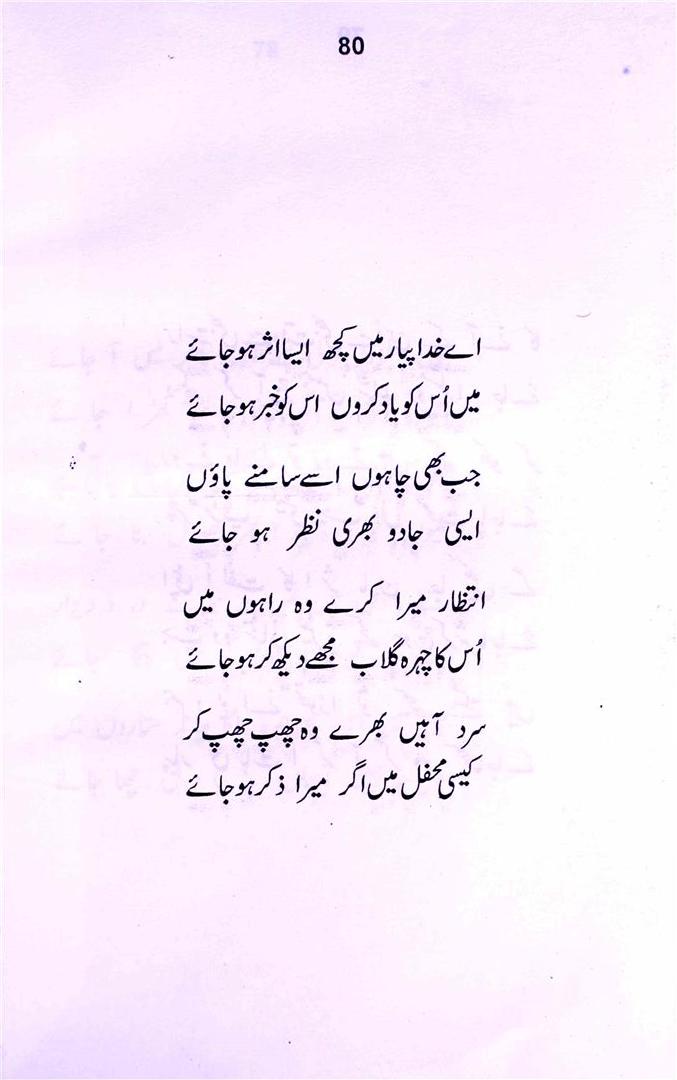 80
اے خدا پیار میں کچھ ایسا اثر ہو جائے
میں اُس کو یاد کروں اس کو خبر ہو جائے
جب بھی چاہوں اسے سامنے پاؤں
ایسی جادو بھری نظر ہو جائے
انتظار میرا کرے وہ راہوں میں
اُس کا چہرہ گلاب مجھے دیکھ کر ہو جائے
سرد آہیں بھرے وہ چھپ چھپ کر
کیسی محفل میں اگر میرا ذکر ہو جائے